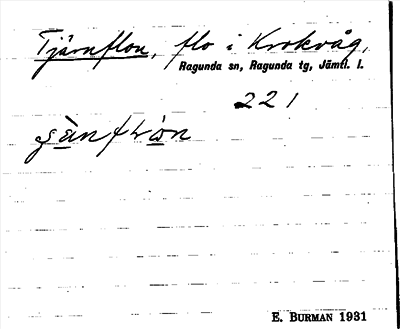 Tjärnflon, flo i Krokvåg,
Ragunda sn, Ragunda tg, Jämtl. l.
221
E. BURMAN 1931